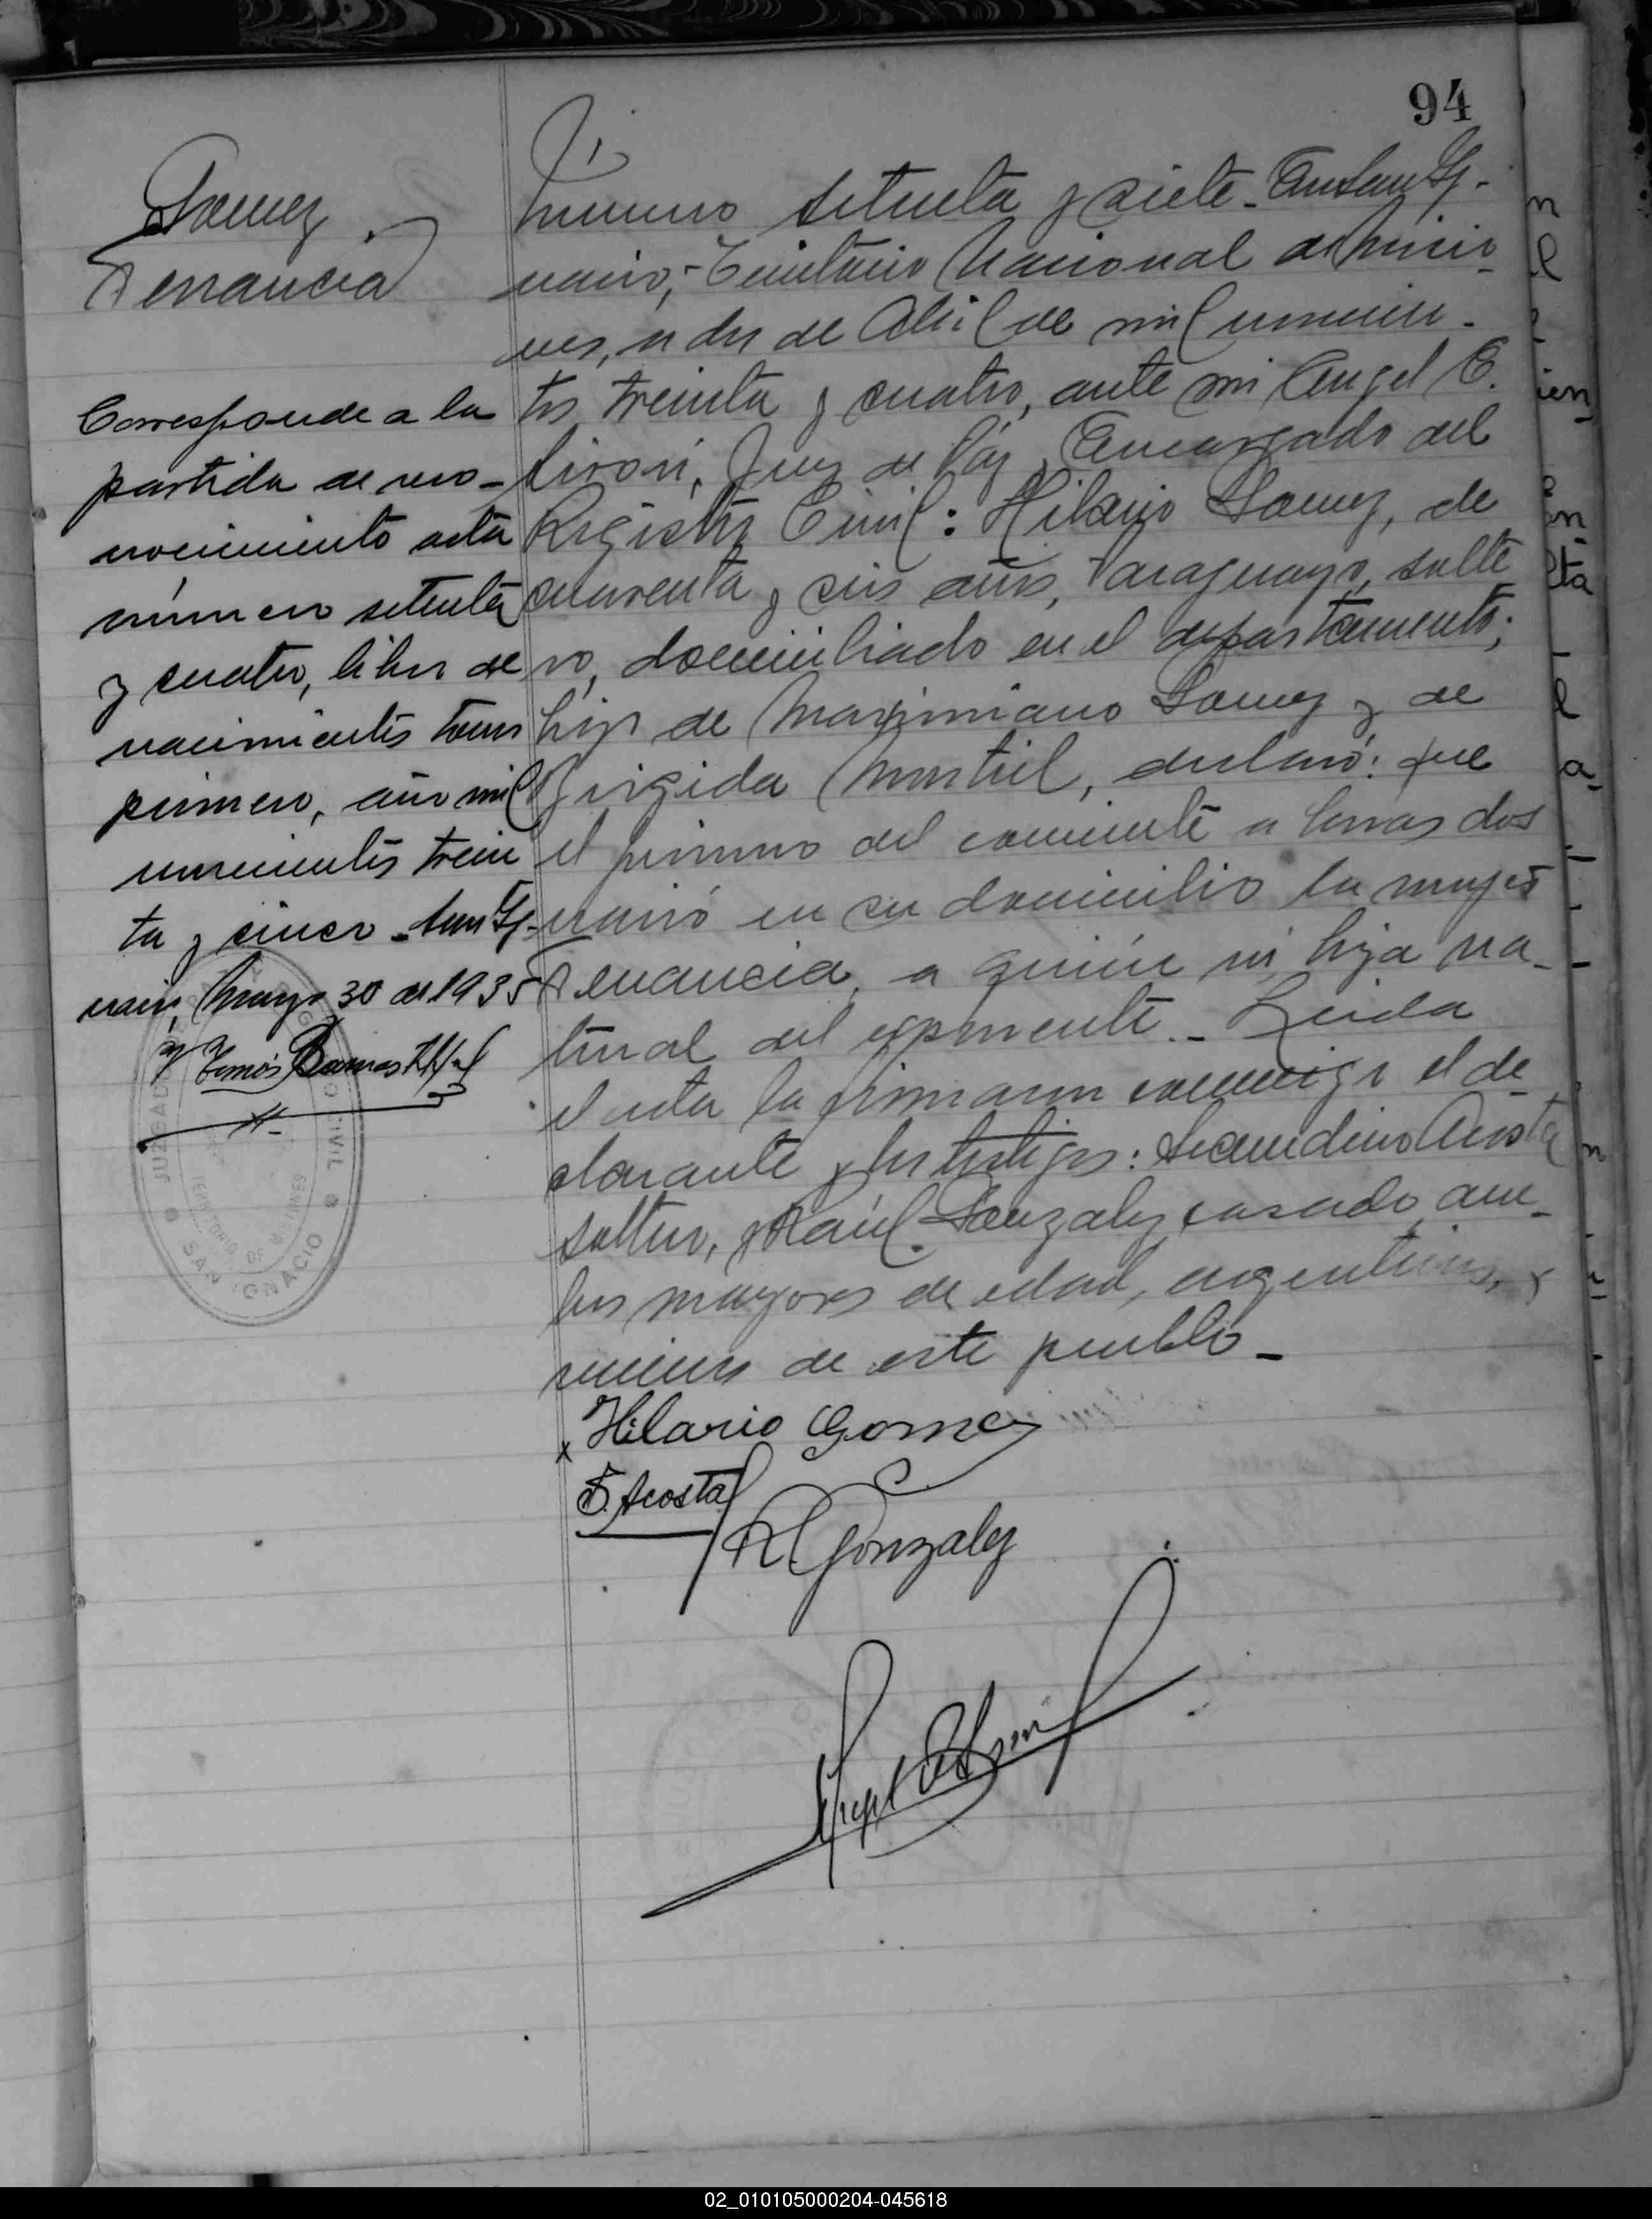 94
Gomez
Venancia
Corresponde a la
partida de reco-
nocimiento acta
número setenta
y cuatro, libro de
nacimientos tomo
primero, año mil
novecientos trein
ta y cinco. San Ig-
nacio, Marzo 30 de 1935
JUZGADO DE PAZ Y REGISTRO CIVIL
TERRITORIO DE MISIONES
SAN IGNACIO
Número setenta y siete. En San Ig-
nacio, Territorio Nacional de Misio
nes, a dos de Abril de mil novecien-
tos treinta y cuatro, ante mi Angel E.
Juez de Paz, Encargado del
Registro Civil: Hilario Gomez, de
cuarenta y seis años, Paraguayo, solte
ro, domiciliado en el departamento;
hijo de Maximiano Gomez y de
Brigida declaró: que
el primero del corriente a horas dos
nació en su domicilio la mujer
Venancia, a quién es hija na-
tural del exponente. Leida
el acta la firmaron conmigo el de
clarante y los testigos: Secundino Acosta
soltero, y Raúl Gonzalez casado, am-
bos mayores de edad, argentinos, y
vecinos de este pueblo_
x Hilario Gomez
S. Acosta
R Gonzalez
02_010105000204-045618